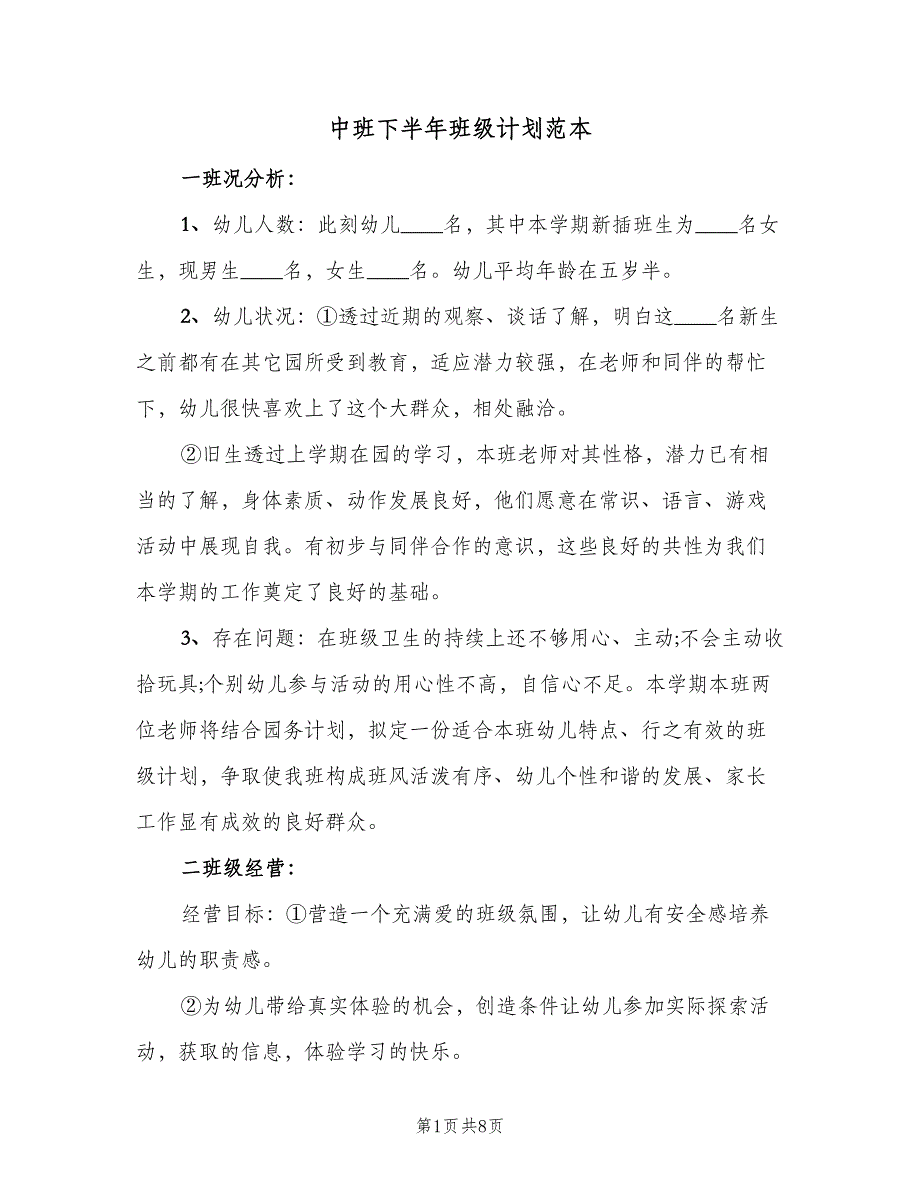 中班下半年班级计划范本
一班况分析：
1、幼儿人数：此刻幼儿____名，其中本学期新插班生为____名女
生，现男生____名，女生____名。幼儿平均年龄在五岁半。
2、幼儿状况：①透过近期的观察、谈话了解，明白这____名新生
之前都有在其它园所受到教育，适应潜力较强，在老师和同伴的帮忙
下，幼儿很快喜欢上了这个大群众，相处融洽。
②旧生透过上学期在园的学习，本班老师对其性格，潜力已有相
当的了解，身体素质、动作发展良好，他们愿意在常识、语言、游戏
活动中展现自我。有初步与同伴合作的意识，这些良好的共性为我们
本学期的工作奠定了良好的基础。
3、存在问题：在班级卫生的持续上还不够用心、主动;不会主动收
拾玩具;个别幼儿参与活动的用心性不高，自信心不足。本学期本班两
位老师将结合园务计划，拟定一份适合本班幼儿特点、行之有效的班
级计划，争取使我班构成班风活泼有序、幼儿个性和谐的发展、家长
工作显有成效的良好群众。
二班级经营：
经营目标：①营造一个充满爱的班级氛围，让幼儿有安全感培养
幼儿的职责感。
②为幼儿带给真实体验的机会，创造条件让幼儿参加实际探索活
动，获取的信息，体验学习的快乐。
第1页 共8页